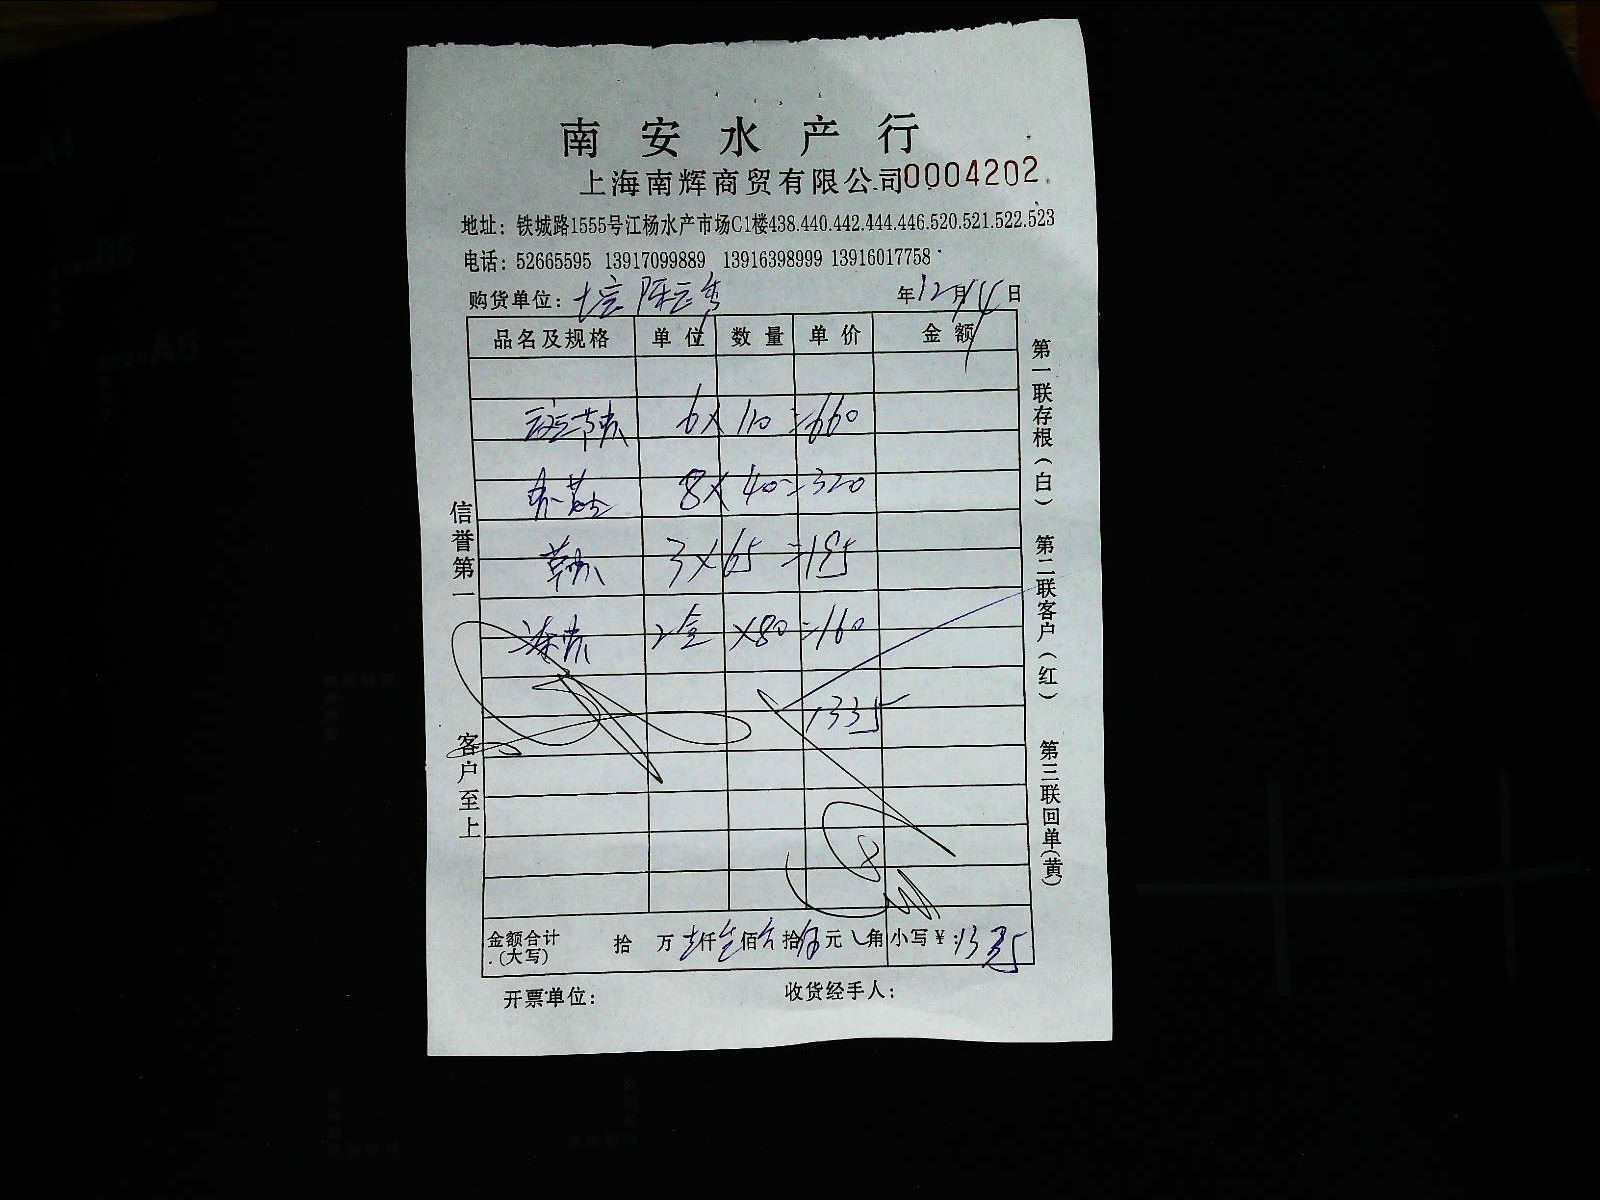 南安水产行
上海南辉商贸有限公司 0004202
地址：铁城路1555号江杨水产市场C1楼438.440.442.444.446.520.521.522.523
电话：52665595 13917099889 13916398999 13916017758
购货单位： 年12月14日
品名及规格 单位 数量 单价 金额
6×110=660
8×40=320
3×65=195
2盒×80=160
1335
金额合计(大写) 拾 万 仟 佰 拾 元 角 小写￥:1335
开票单位： 收货经手人：
信誉第一
客户至上
第一联存根(白) 第二联客户(红) 第三联回单(黄)